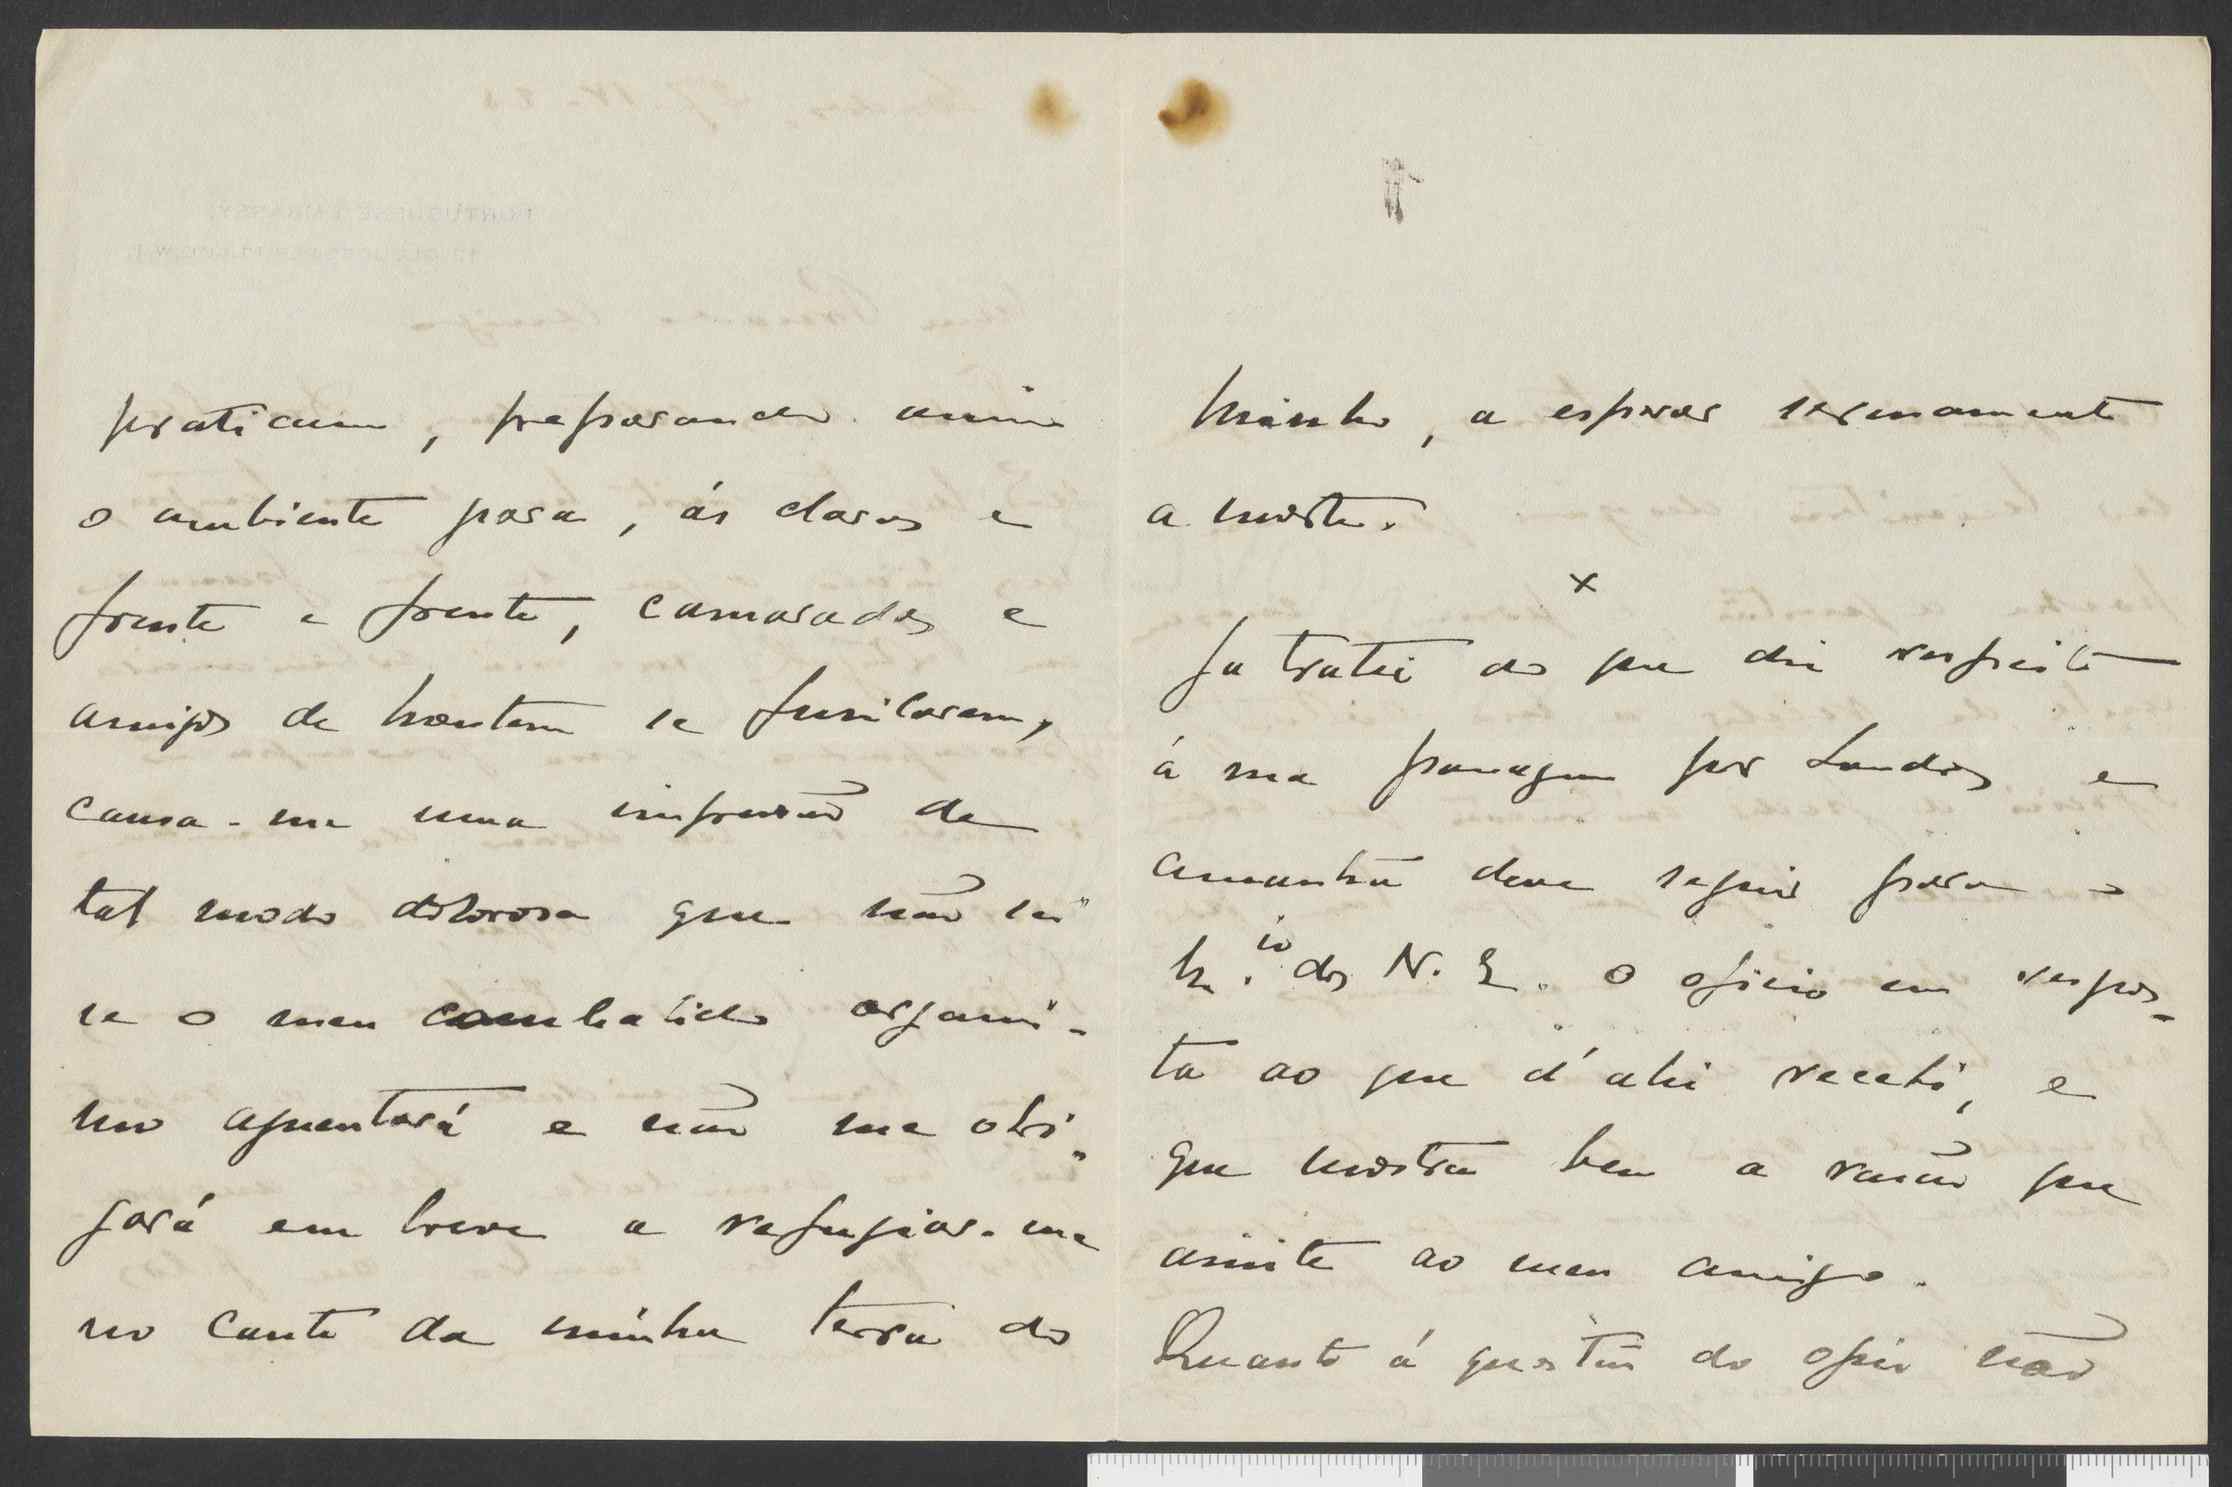 praticam, preparando assim
o ambiente para, ás claras e
frente a frente, camaradas e
amigos de hontem se fusilarem,
causa-me uma impressão de
tal modo dolorosa que não sei
se o meu combalido organi-
smo aguentará e não me obri-
gará em breve a refugiar-me
no canto da minha terra do
Minho, a esperar serenamente
a morte.
x
Ja tratei do que diz respeito
á sua passagem por Londres e
amanhã deve seguir para o
M.io dos N. E. o oficio em respos-
ta ao que d'ahi recebi, e
que mostra bem a razão que
assiste ao meu amigo.
Quanto á questão do opio não